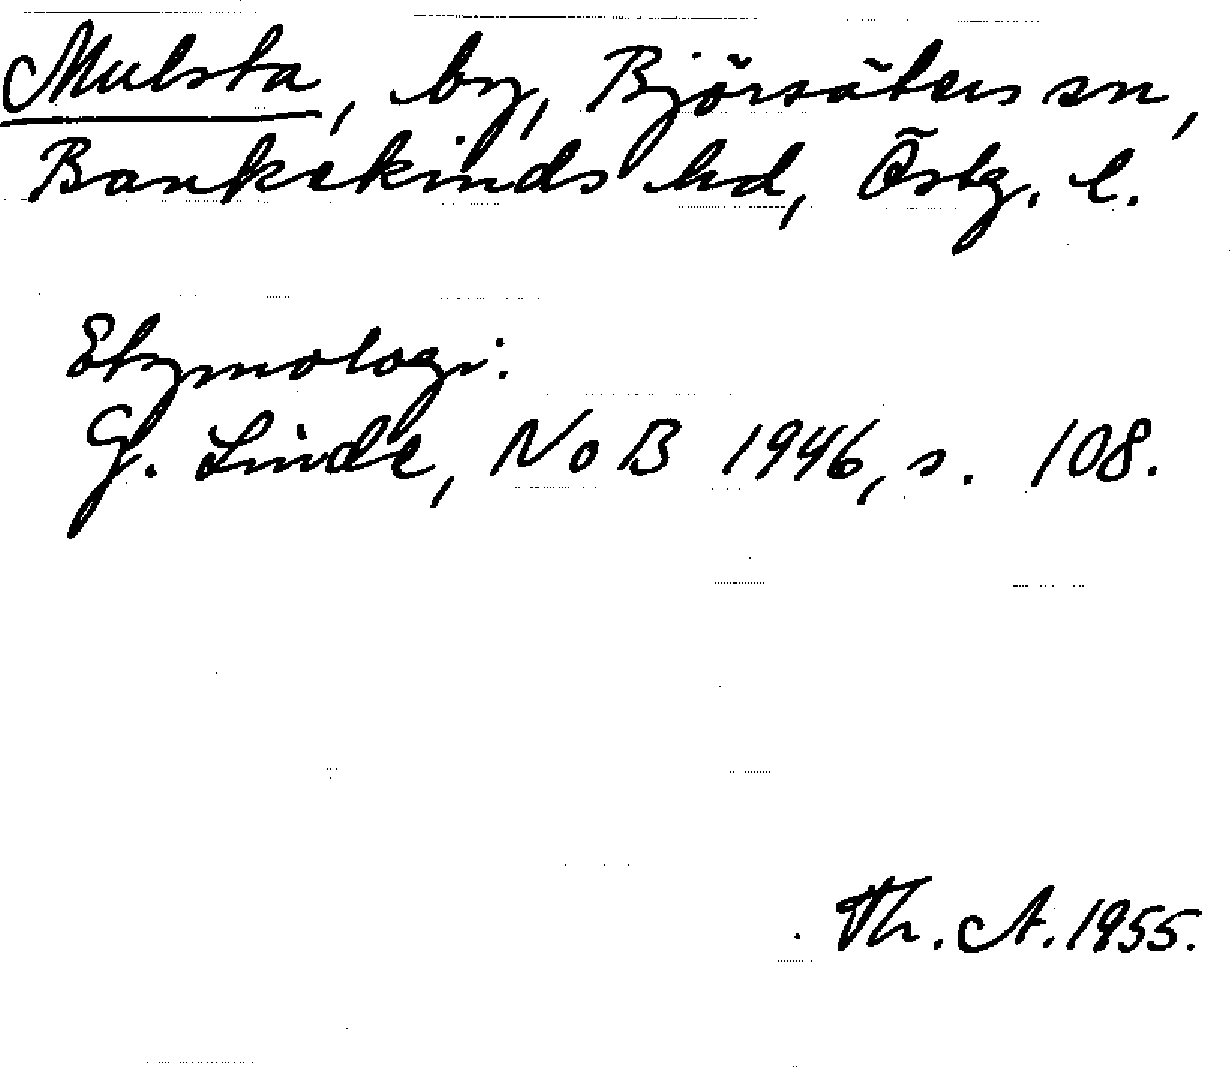 Mulsta, by, Björsäters sn,
Bankekinds hd, Östg. l.
Etymologi:
G. Linde, NoB 1946, s. 108.
Th. A. 1955.